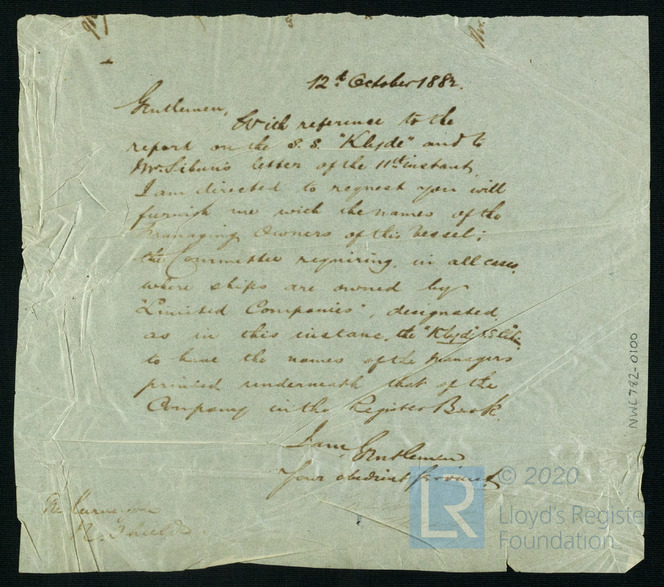 12th October 1882.
Gentlemen,
With reference to the
report on the S.S. "Klyde" and to
Mr Sibun's letter of the 11th instant,
I am directed to request you will
furnish me with the names of the
Managing Owners of this Vessel;
the Committee requiring, in all cases,
where ships are owned by
"Limited Companies", designated,
as in this instance, the "Klyde"
to have the names of the Managers
printed underneath that of the
Company in the Register Book.
I am, Gentlemen
Your obedient Servant
The Surveyors
N. Shields
NWC782-0100
© 2020
LR
Lloyd's Register
Foundation